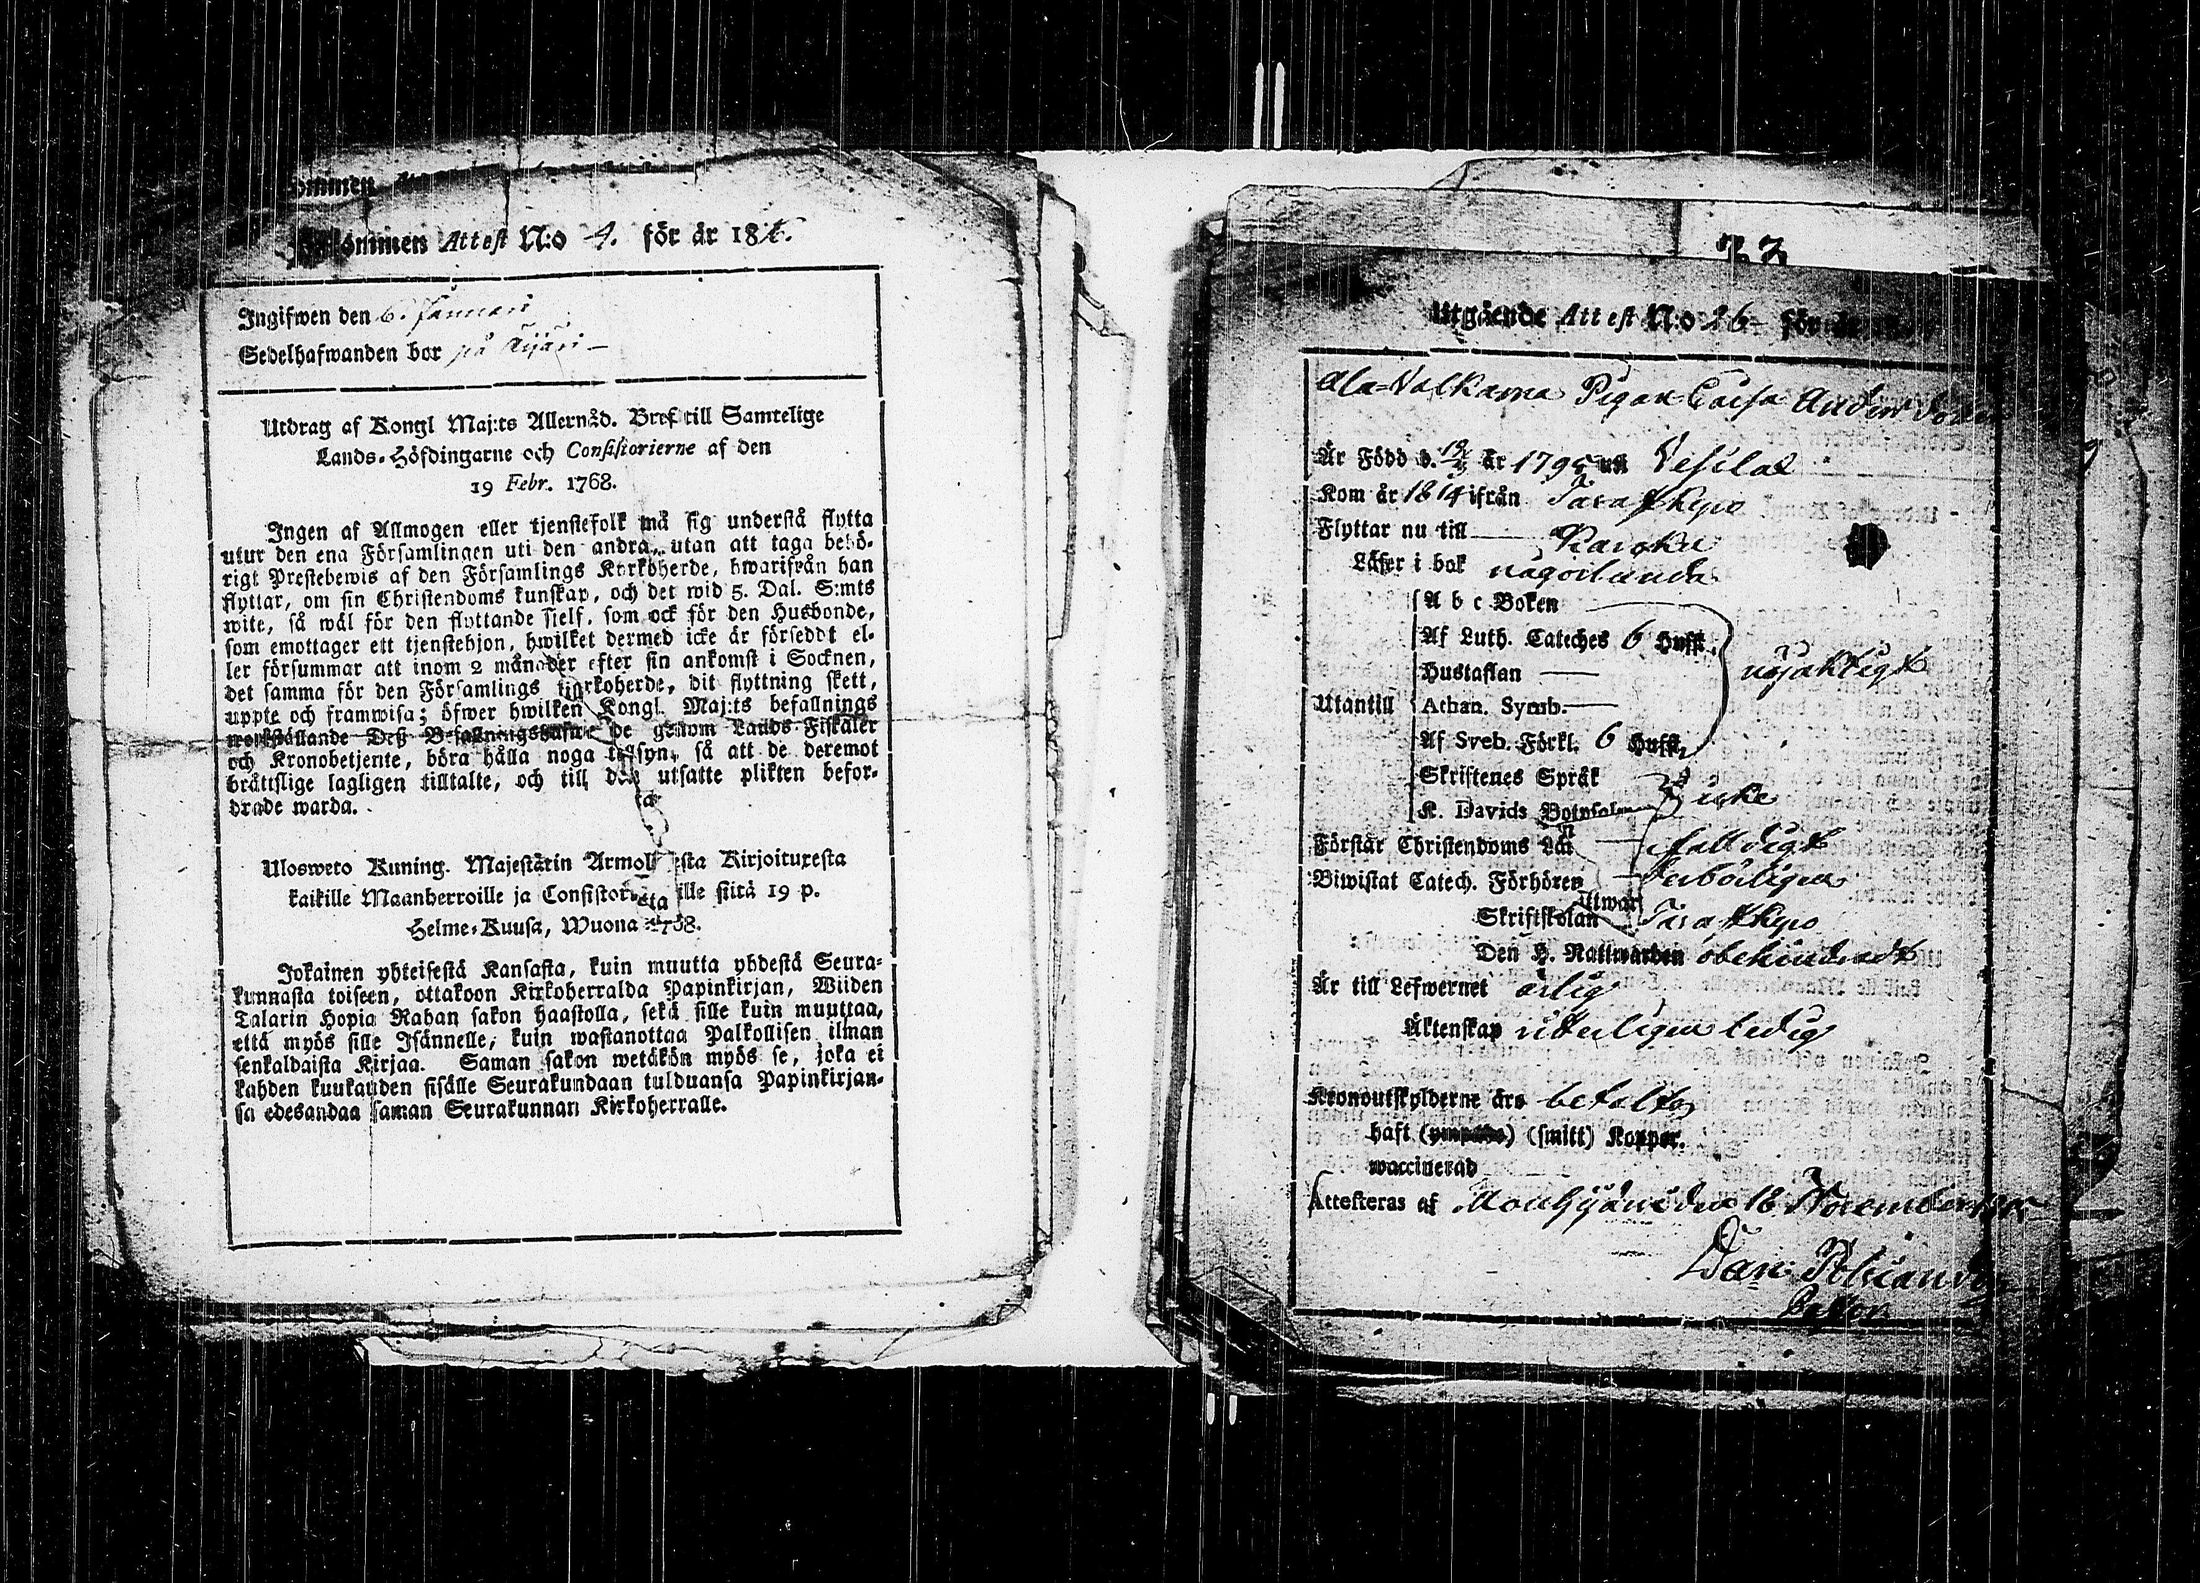 ommen
kommen Attest N:o 4. för år 18
Ingifwen den 6. Januari
Sedelhafwanden bor på
Utdrag af Kongl Maj:ts Allernåd. Bref till Samtelige
Lands-Höfdingarne och Consistorierne af den
19 Febr. 1768.
Ingen af Allmogen eller tjenstefolk må sig understå flytta
utur den ena Församlingen uti den andra, utan att taga behö-
rigt Prestebewis af den Församlings Kyrkoherde, hwarifrån han
flyttar, om sin Christendoms kunskap, och det wid 5. Dal. S:mts
wite, så wäl för den flyttande sielf, som ock för den Husbonde,
som emottager ett tjenstehjon, hwilket dermed icke är försedt el-
ler försummar att inom 2 månader efter sin ankomst i Socknen,
det samma för den Församlings Kyrkoherde, dit flyttning skett,
uppte och framwisa; öfwer hwilken Kongl. Maj:ts befallnings
werkställande Deß Befallningshafwande genom Lands-Fiskaler
och Kronobetjente, böra hålla noga tillsyn, så att de deremot
bråttslige lagligen tilltalte, och till den utsatte plikten befor-
drade warda.
Ulosweto Kuning. Majestätin Armollisesta Kirjoituxesta
kaikille Maanherroille ja Consistoriumille siitä 19 p.
Helme-Kuusa, Wuona 1768.
Jokainen yhteisestä Kansasta, kuin muutta yhdestä Seura-
kunnasta toiseen, ottakoon Kirkoherralda Papinkirjan, Wiiden
Talarin Hopia Rahan sakon haastolla, sekä sille kuin muuttaa,
että myös sille Isännelle, kuin wastanottaa Palkollisen ilman
senkaldaista Kirjaa. Saman sakon wetäkön myös se, joka ei
kahden kuukauden sisälle Seurakundaan tulduansa Papinkirjan-
sa edesandaa saman Seurakunnan Kirkoherralle.
Utgående Attest N:o 26 för år
Ala-Valkama Pigan Caisa Anders dotter
Är Född d. 19/ år 1795 uti Vesilax
Kom år 1814 ifrån Tavastkyro
Flyttar nu till Karcku
Läser i bok någorlunda
A b c Boken
Af Luth. Cateches 6 Hufst.
Hustaflan
nöjaktigt
Utantill
Athan. Symb.
Af Sveb. Förkl. 6 Hufst.
Skriftenes Språk
K. Davids Botpsalm icke
Förstår Christendoms Lär enfalldigt
Biwistat Catech. Förhören behörigen
Skriftskolan Tavastkyro
Den H. Nattwarden obehindradt
Är till Lefwernet ärlig
Äktenskap ytterligen ledig
Kronoutskylderne äro betalte
haft (ympade) (smitt) Koppor.
waccinerad
Attesteras af Mouhijärvi den 16 November
Dan
Pastor